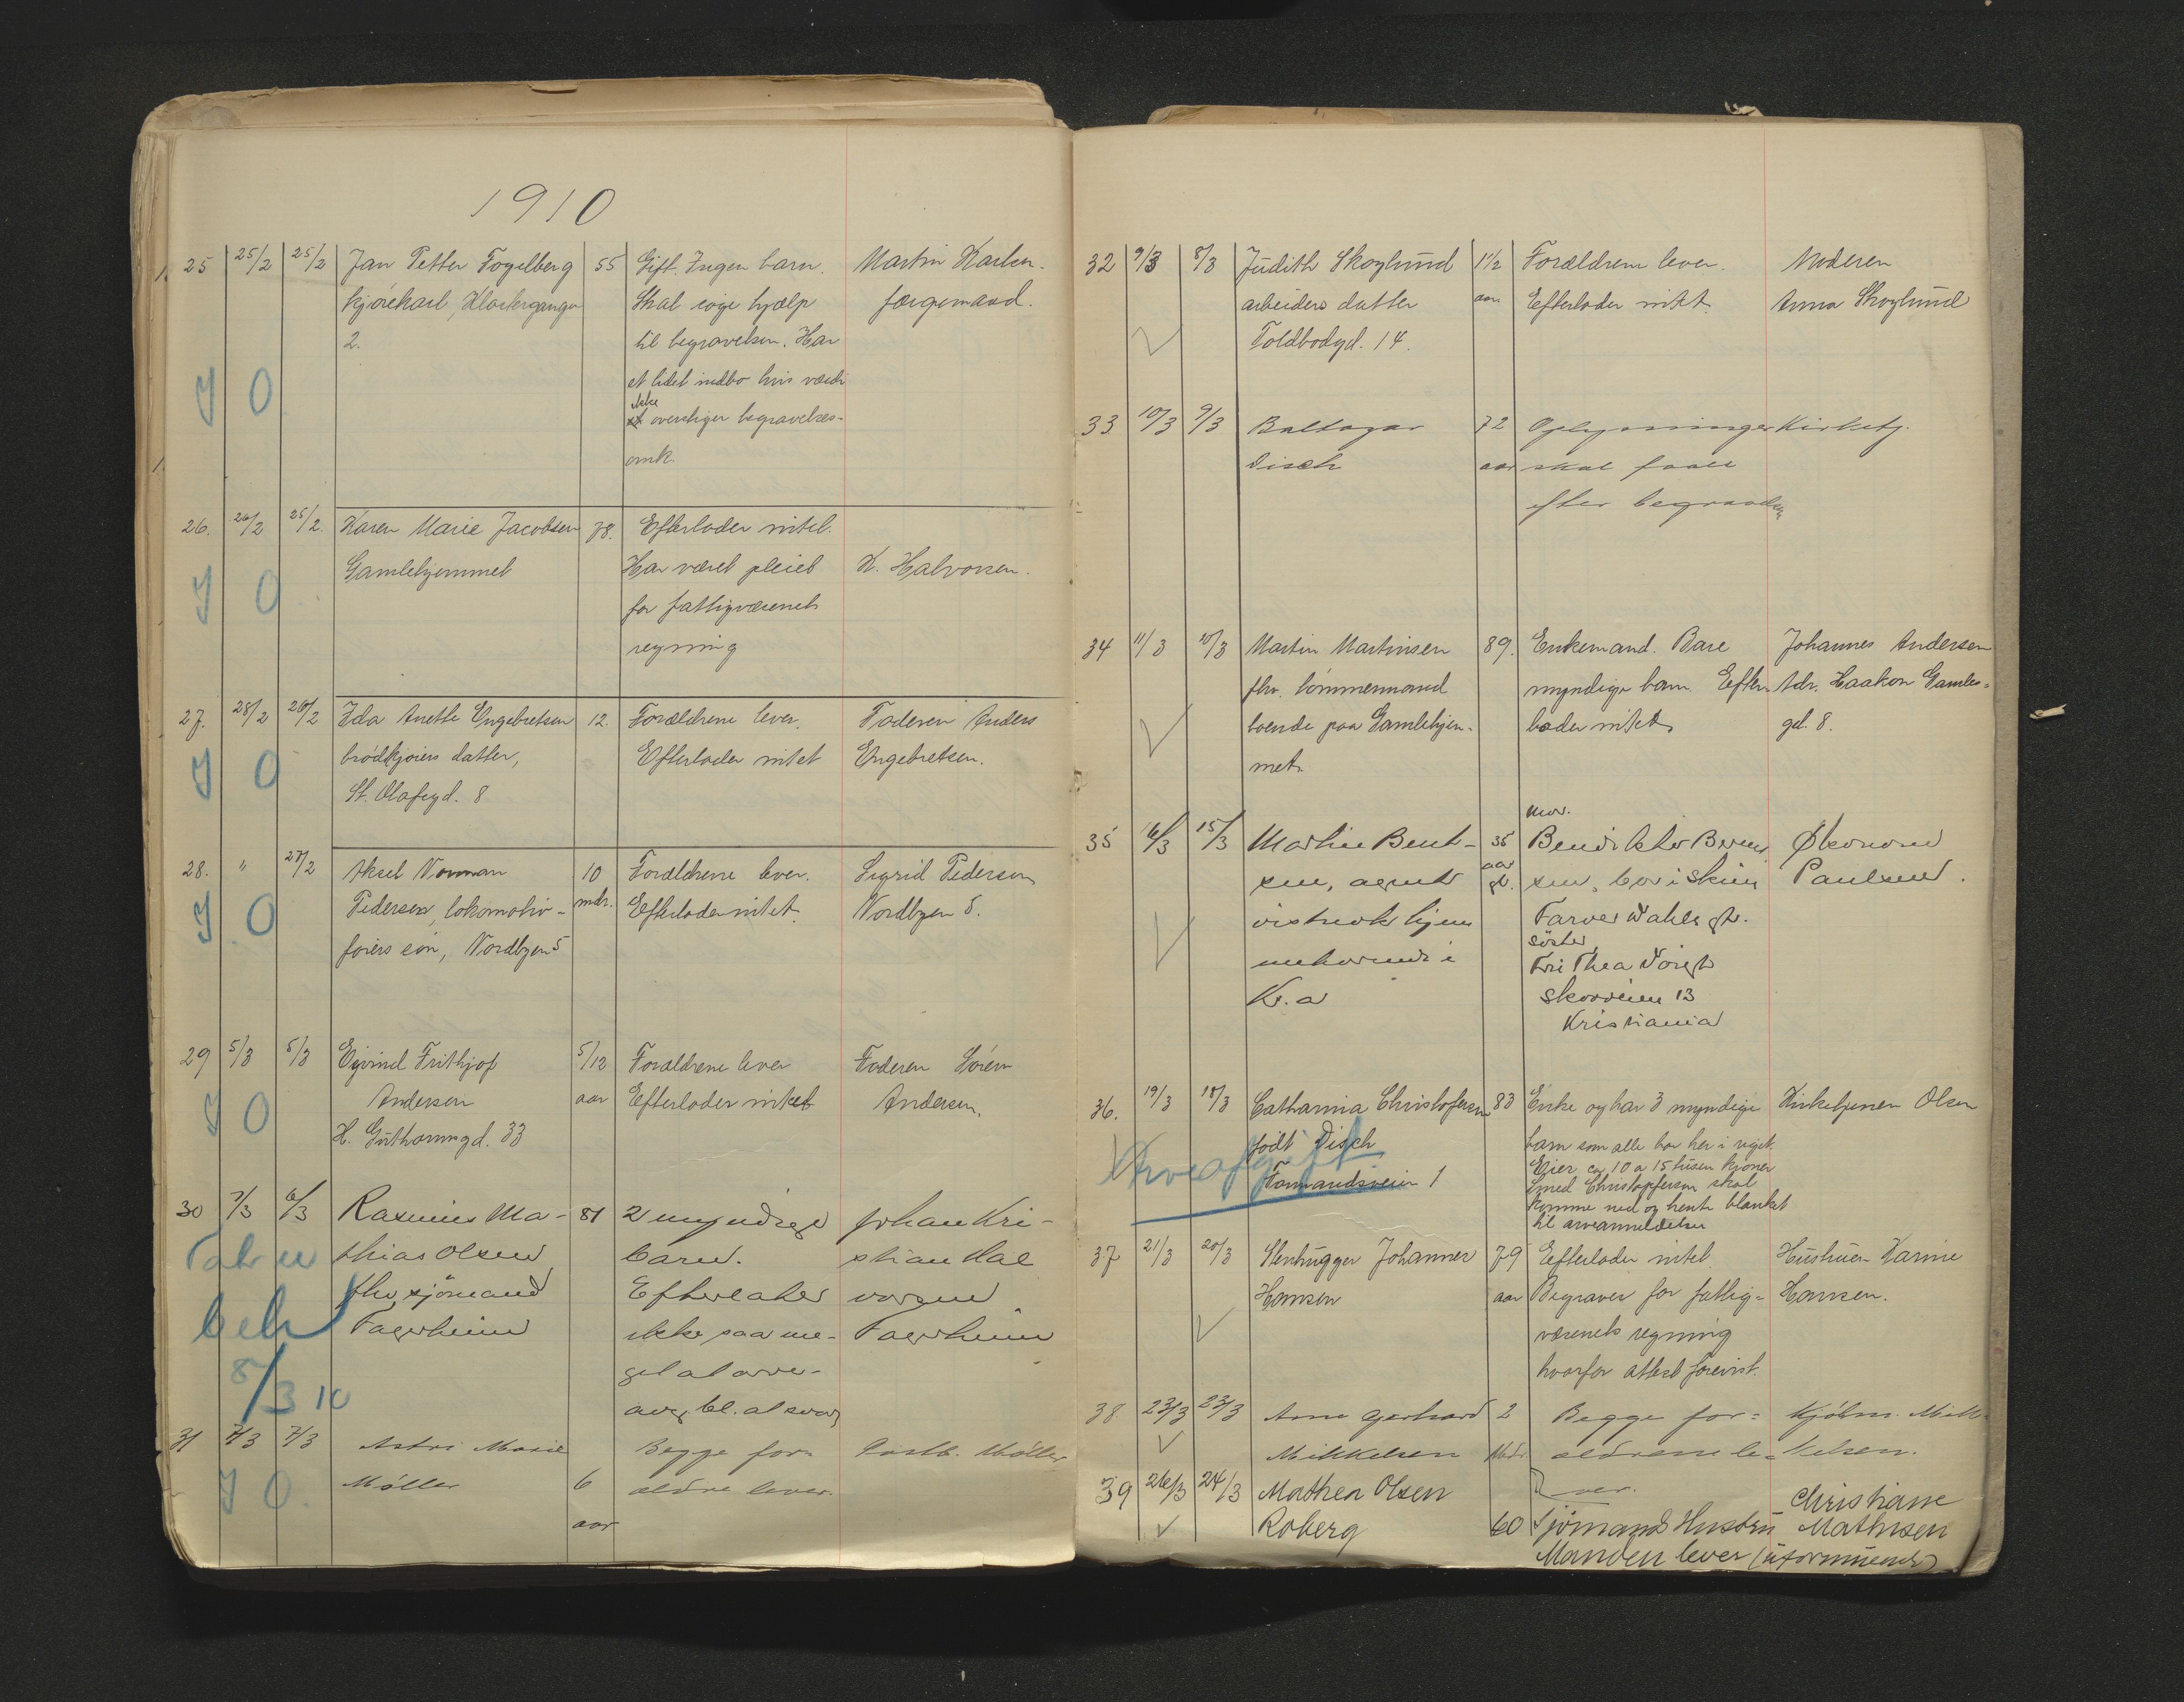 1910
25 25/2 25/2 Jan Petter Fogelberg 55 Gift. Ingen barn. Martin Karlsen.
kjörekarl, Klostergangen Skal söge hjælp færgemand.
2. til begravelsen. Har
et lidet indbo hvis værdi
ikke
overstiger begravelses-
omk.
J O
26. 26/2 25/2. Karen Marie Jacobsen 78. Efterlader intet.
Gamlehjemmet Har været pleiet K. Halvorsen.
for fattigvæsenets
regning
J O
27. 28/2 26/2 Ida Anette Engebretsen 12. Forældrene lever. Faderen Anders
brödkjörers datter, Efterlader intet Engebretsen.
St. Olafsgd. 8
J O
28. " 27/2 Aksel Norman 10 Forældrene lever. Sigrid Pedersen
Pedersen, lokomotiv- mdr. Efterlader intet. Nordbyen 5.
förers sön, Nordbyen 5
J O
29 5/3 5/3 Eyvind Frithjof 5/12 Forældrene lever Faderen Sören
Andersen aar Efterlader intet Andersen.
H. Guthormsgd. 33
J O
30 7/3 6/3 Rasmus Ma- 81 2 myndige Johan Kri-
thias Olsen barn. stian Hal
fhv. sjömand Efterlader vorsen
Fagerheim ikke saa me- Fagerheim
get at arve-
avg. bl. at svar
8/3 10
31 7/3 7/3 Astri Marie Begge for-
Møller 6 ældre lever.
aar
J O.
32 9/3 8/3 Judith Skoglund 1 1/2 Forældrene lever. Moderen
arbeiders datter aar. Efterlader intet. Anna Skoglund
Toldbodgd. 14.
33 10/3 9/3 Baltazar 72 Oplysninger Kirketj.
Disch aar skal faaes
efter begravelsen
34 11/3 10/3 Martin Martinsen 89. Enkemand. Bare Johannes Andersen
fhv. tömmermand myndige barn. Efter- Adr. Haakon Gamles-
boende paa Gamlehjem- lader intet gd. 8.
met.
mor.
35 16/3 15/3 Martin Bent- 35 Økonom
sen, agent aar bor i Skien Paulsen.
gl.
Farver
söster
hjem
mehörende i Thea
Kr.a Skovveien 13
Kristiania
36. 19/3 18/3 Catharina Christofersen 83 Enke og har 3 myndige Kirketjener Olsen
födt Disch barn som alle bor her i riget.
Arveafgift
Farmandsveien 1 Eier ca. 10 a 15 tusen kroner
Smed Christopfersen skal
komme ned og hente blanket
til arveanmeldelse
37 21/3 20/3 Stenhugger Johannes 79 Efterlader intet. Hustruen Karine
Hansen aar Begraves for fattig- Hansen.
væsenets regning
hvorfor attest forevist.
38 23/3 23/3 Arne Gerhard 2 Begge for- Kjøbm. Mik
Mikkelsen Mdr. ældrene le- kelsen.
ver.
39 26/3 24/3 Mathea Olsen Christiane
Roberg 60 Sjömands Hustru Mathisen
Manden lever (uformuende)